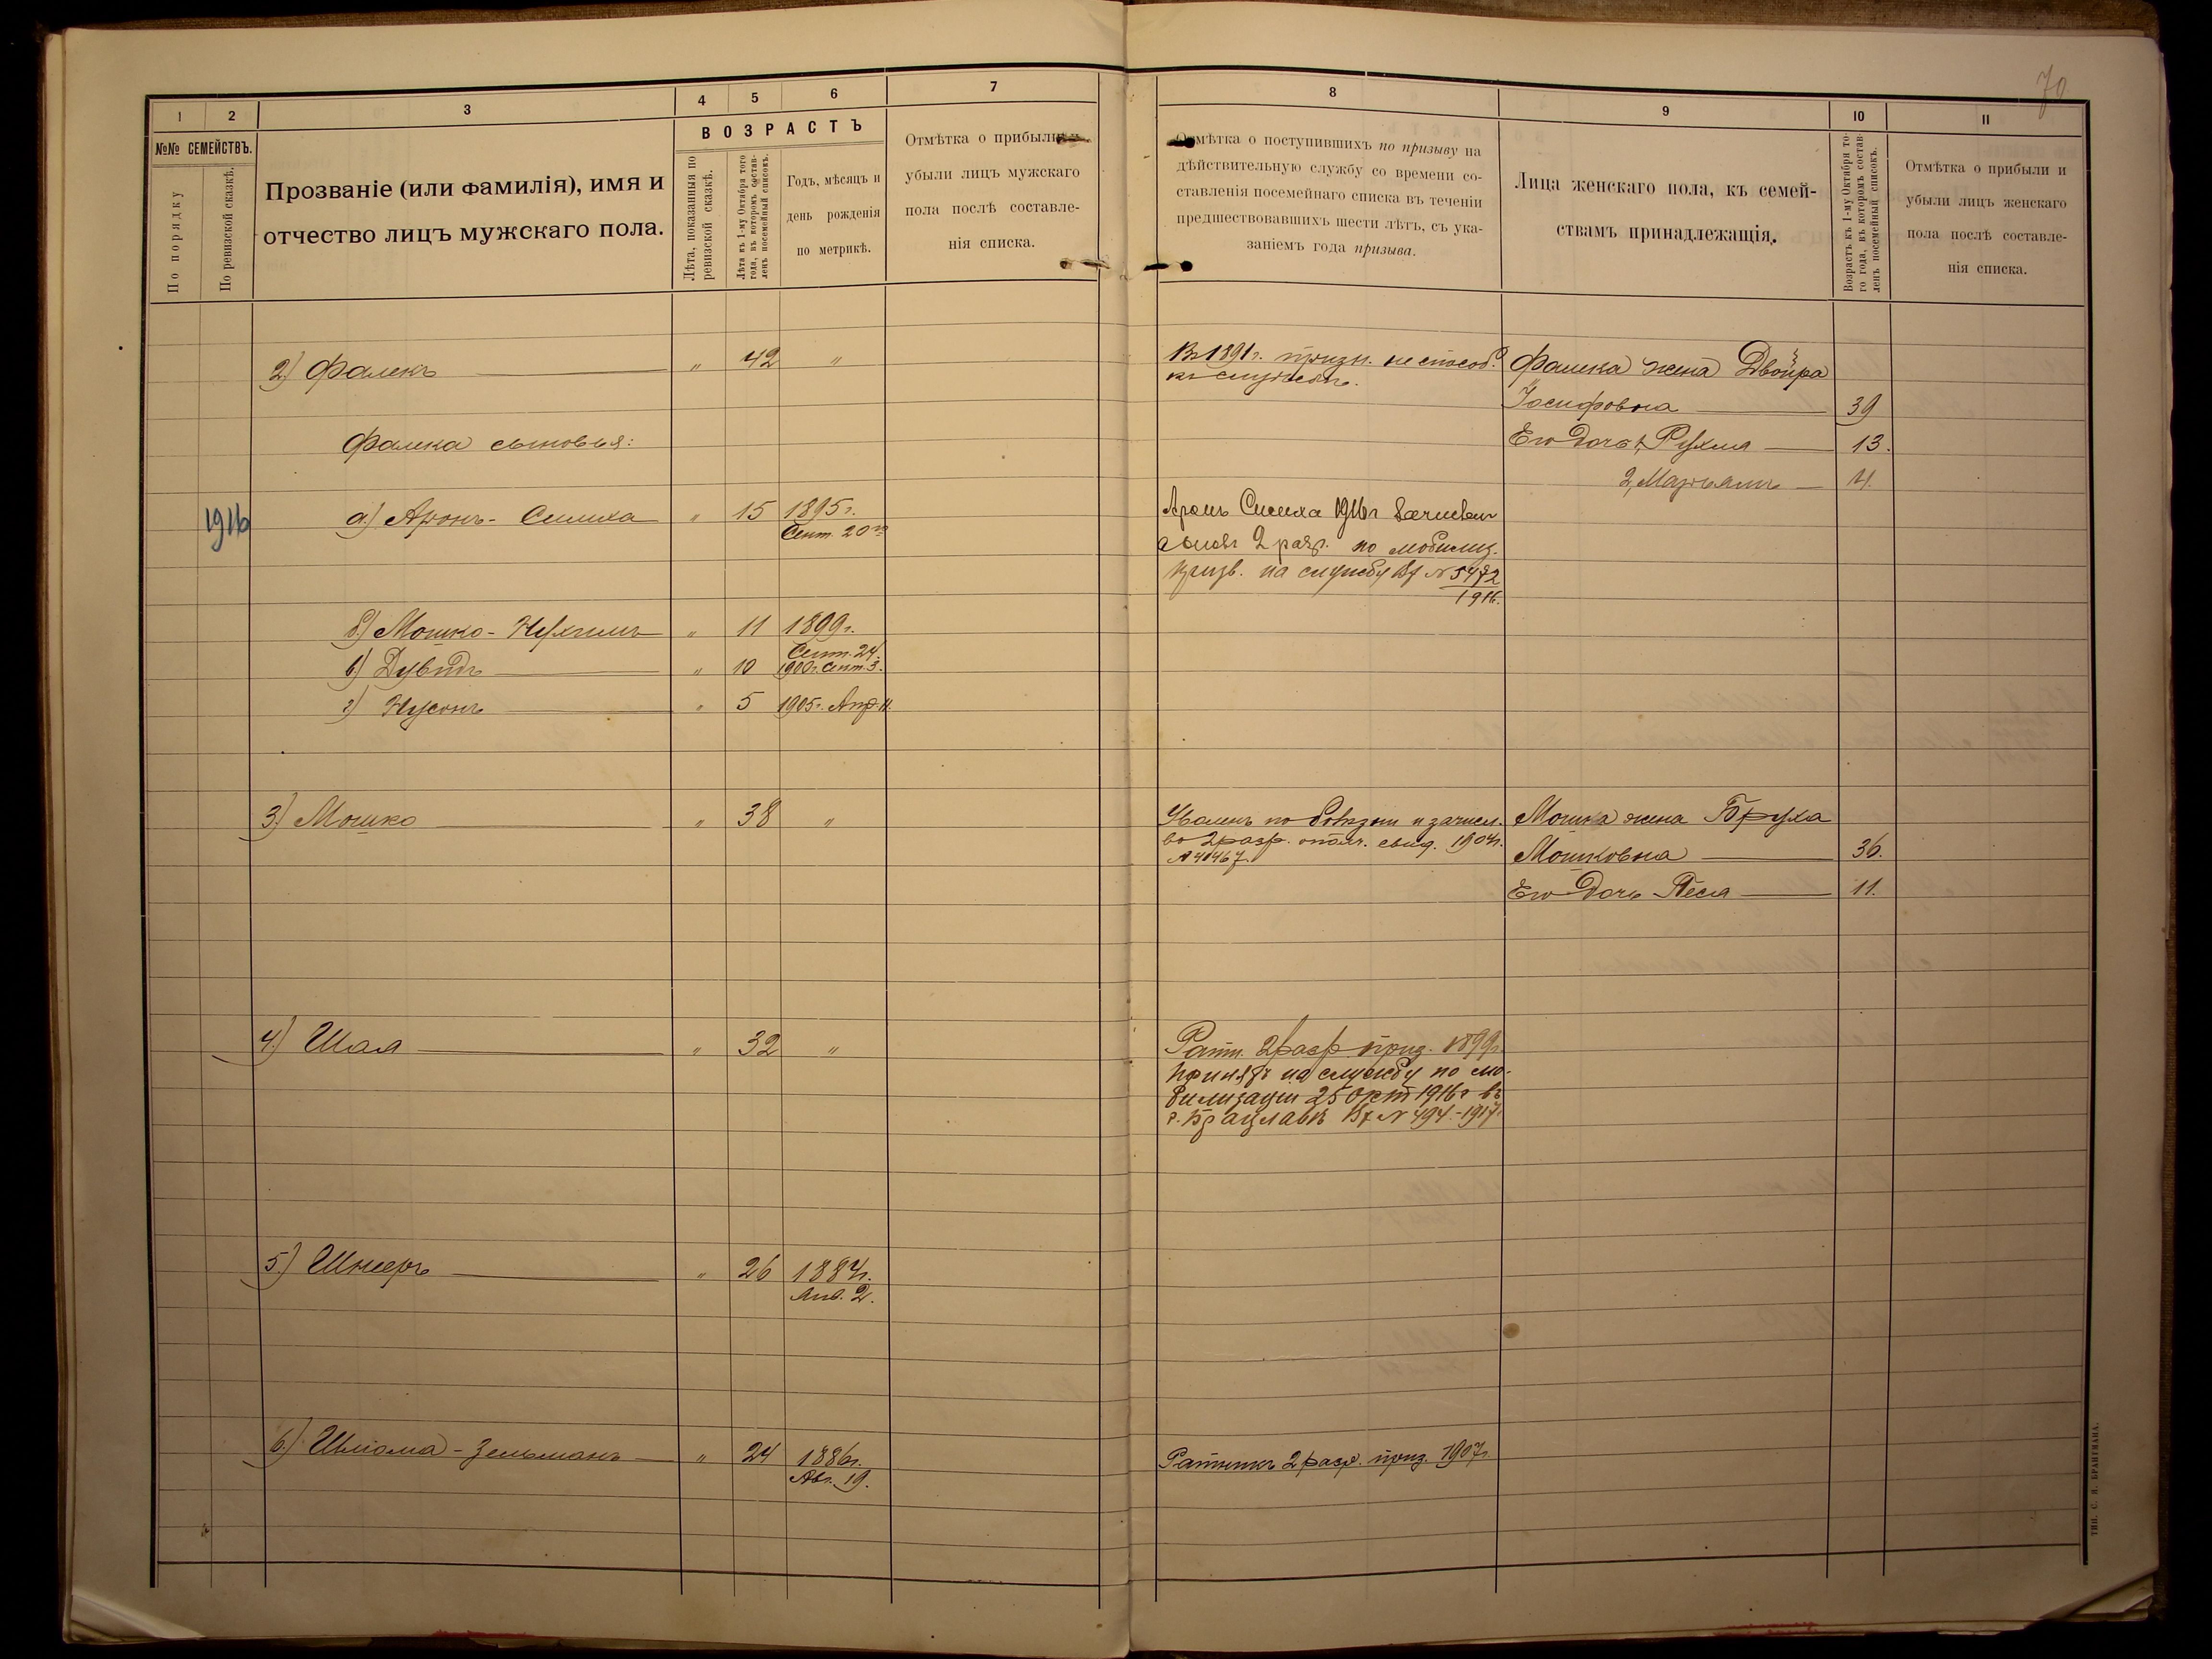 70
1 2 3 4 5 6 7
№№ СЕМЕЙСТВЪ.
По порядку
По ревизской сказкѣ.
Прозваніе (или фамилія), имя и
отчество лицъ мужскаго пола.
ВОЗРАСТЪ
Лѣта, показанныя по
ревизской сказкѣ.
Лѣта къ 1-му Октября того
года, въ которомъ состав-
ленъ посемейный списокъ.
Годъ, мѣсяцъ и
день рожденія
по метрикѣ.
Отмѣтка о прибыли и
убыли лицъ мужскаго
пола послѣ составле-
нія списка.
8 9 10 11
Отмѣтка о поступившихъ по призыву на
дѣйствительную службу со времени со-
ставленія посемейнаго списка въ теченіи
предшествовавшихъ шести лѣтъ, съ ука-
заніемъ года призыва.
Лица женскаго пола, къ семей-
ствамъ принадлежащія.
Возрастъ къ 1-му Октября то-
го года, въ которомъ состав-
ленъ посемейный списокъ.
Отмѣтка о прибыли и
убыли лицъ женскаго
пола послѣ составле-
нія списка.
2) Фалекъ " 42 "
Въ 1891 г. призн. не способ.
къ службѣ.
Фалека жена Двойра
Іосифовна 39
Его дочь 1, Рухля 13.
2, Марьямъ 4.
Фалека сыновья:
1916
а) Аронъ-Симха " 15 1895 г.
Сент. 20го
Аронъ Симха 1916 г
2 разр. по мобилиз.
призв. на службу Вх № 5472
1916.
б) Мошко-Нухимъ " 11 1899 г.
Сент. 24.
в) Дувидъ " 10 1900 г. Сент. 3.
г) Нусонъ " 5 1905 г. Апр. 11.
3) Мошко " 38 "
Уволенъ по болѣзни и зачисл.
во 2 разр. ополч. свид. 1904 г.
№ 40467.
Мошка жена Бруха
Мошковна 36.
Его дочь Песя 11.
4) Шая " 32 "
Ратн. 2 разр. приз. 1899 г.
Принятъ на службу по мо-
билизаціи 25 Окт 1916 г въ
г. Брацлавѣ Вх № 494.-1917 г.
5) Шнеръ " 26 1884 г.
Янв. 2.
6) Шліома-Зельманъ " 24 1886 г.
Авг. 19.
Ратникъ 2 разр. приз. 1907 г.
ТИП. С. Я. БРАНГМАНА.